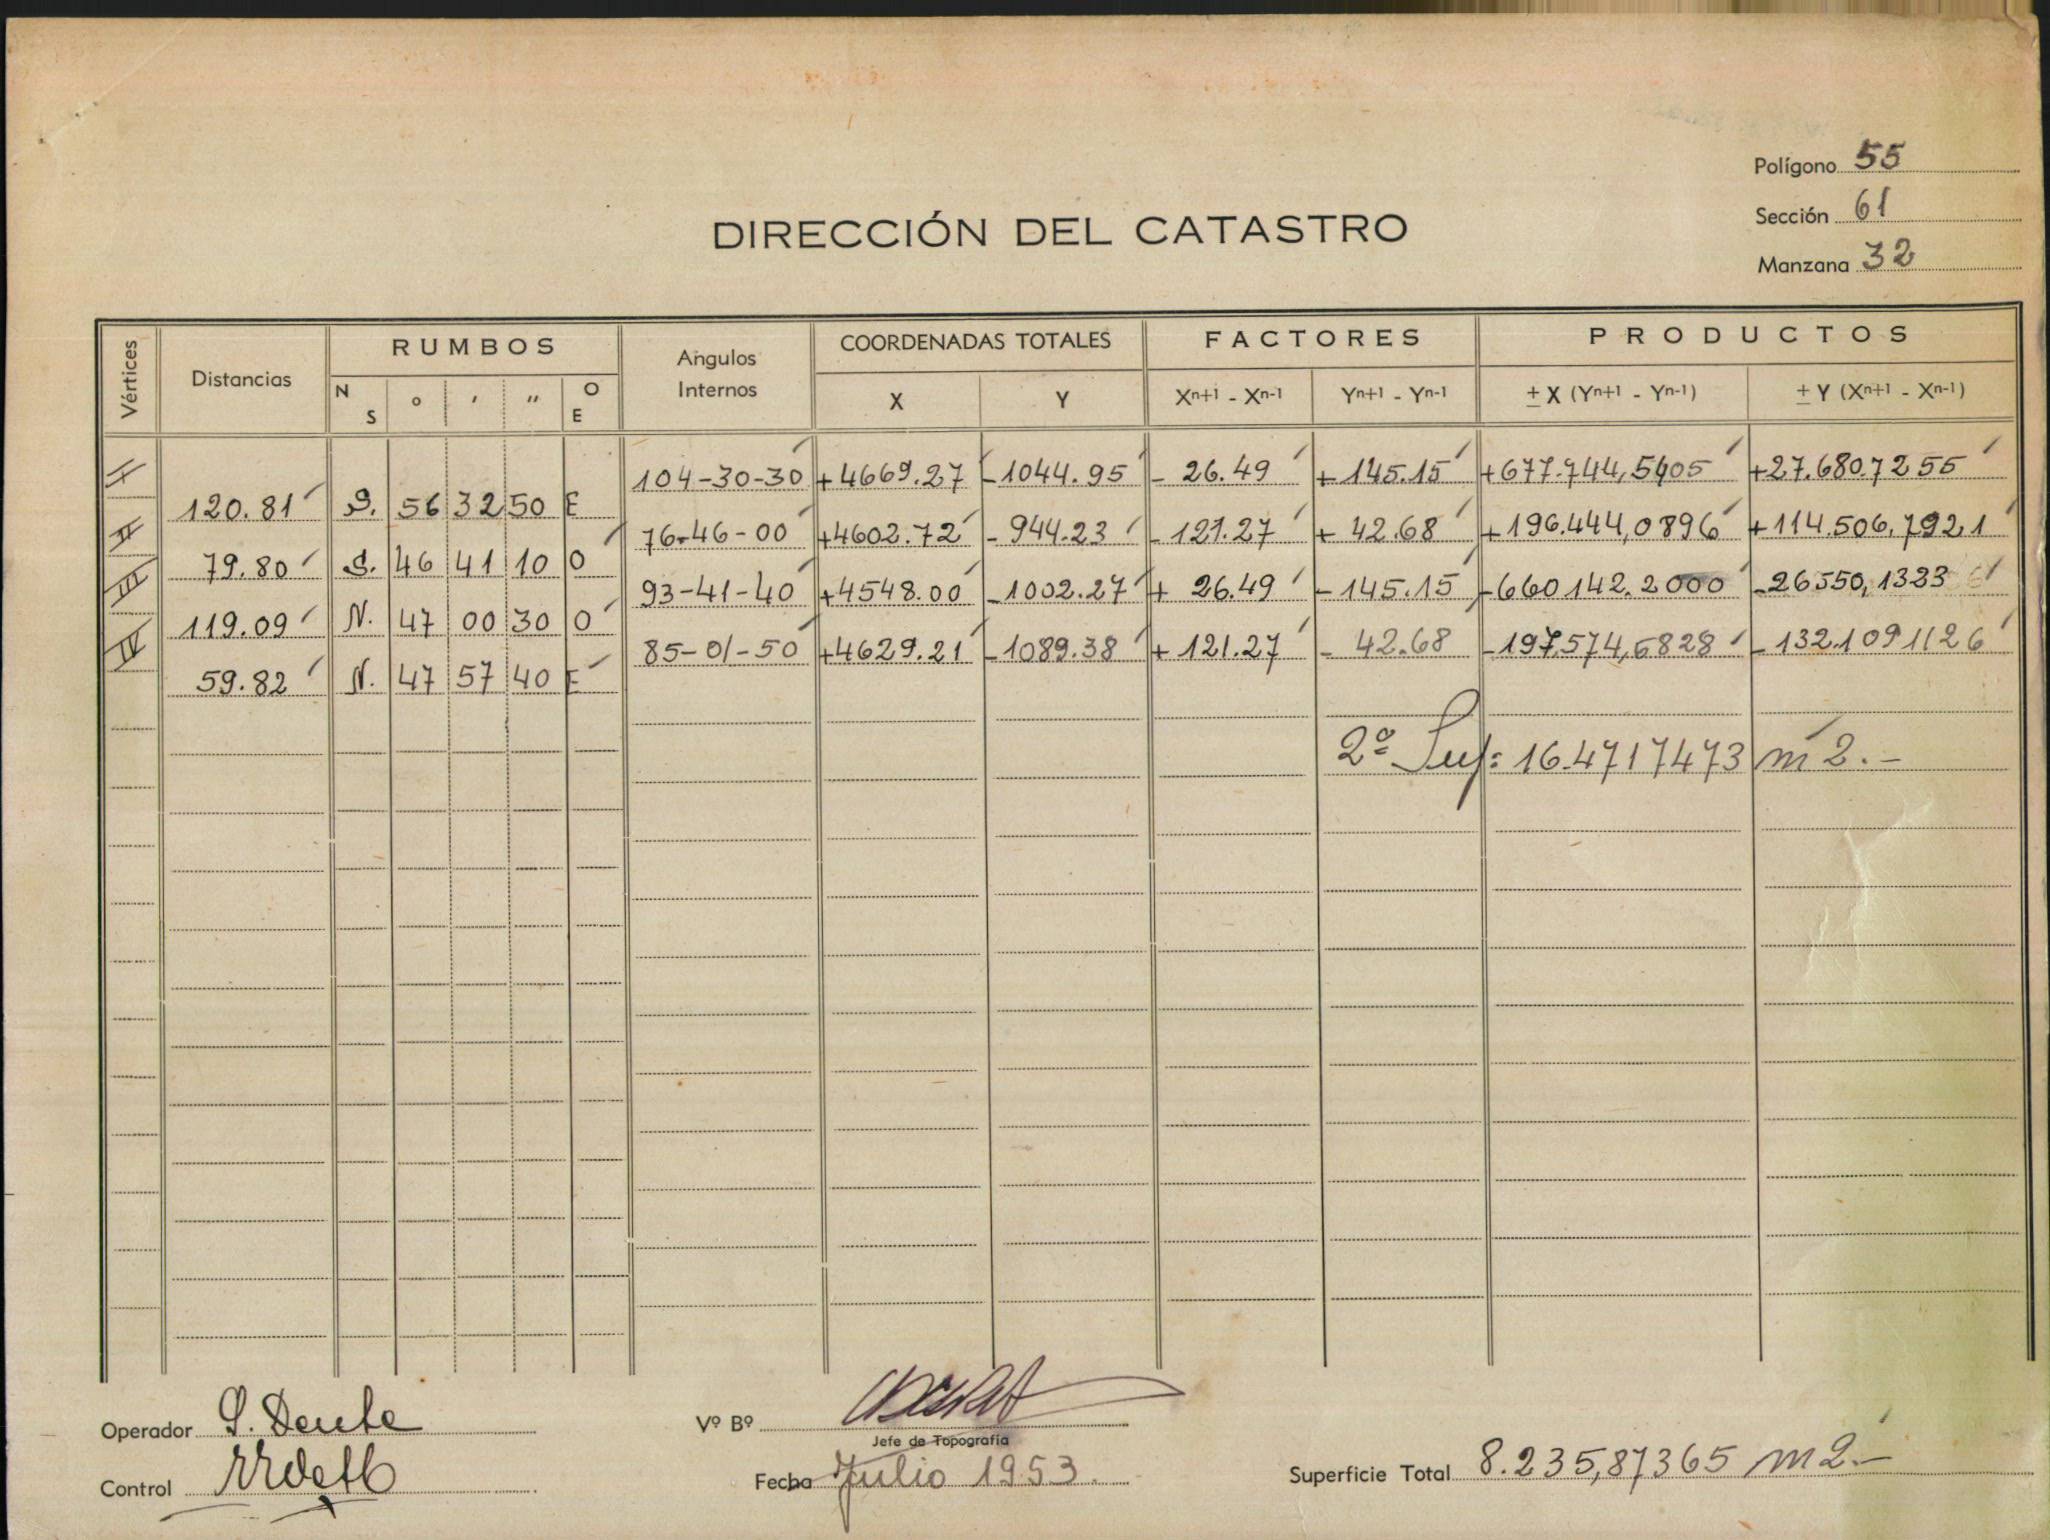 Polígono 55
Sección 61
Manzana 32
DIRECCIÓN DEL CATASTRO
Vértices Distancias RUMBOS Angulos Internos COORDENADAS TOTALES FACTORES PRODUCTOS
N S ° ' " O E X Y Xn+1 - Xn-1 Yn+1 - Yn-1 ± X (Yn+1 - Yn-1) ± Y (Xn+1 - Xn-1)
I 104-30-30 +4669.27 -1044.95 - 26.49 +145.15 +677.744,5405 +27.680.7255
120.81 S. 56 32 50 E
II 76-46-00 +4602.72 - 944.23 - 121.27 + 42.68 +196.444,0896 +114.506,7921
79.80 S. 46 41 10 O
III 93-41-40 +4548.00 -1002.27 + 26.49 -145.15 -660142.2000 -26550,1323
119.09 N. 47 00 30 O
IV 85-01-50 +4629.21 -1089.38 + 121.27 - 42.68 -197.574,6828 -132.1091126
59.82 N. 47 57 40 E
2ª Sup: 16.4717473 m2.-
Operador S. Dente
Vº Bº
Jefe de Topografía
Control
Fecha Julio 1953.
Superficie Total 8.235,87365 m2.-